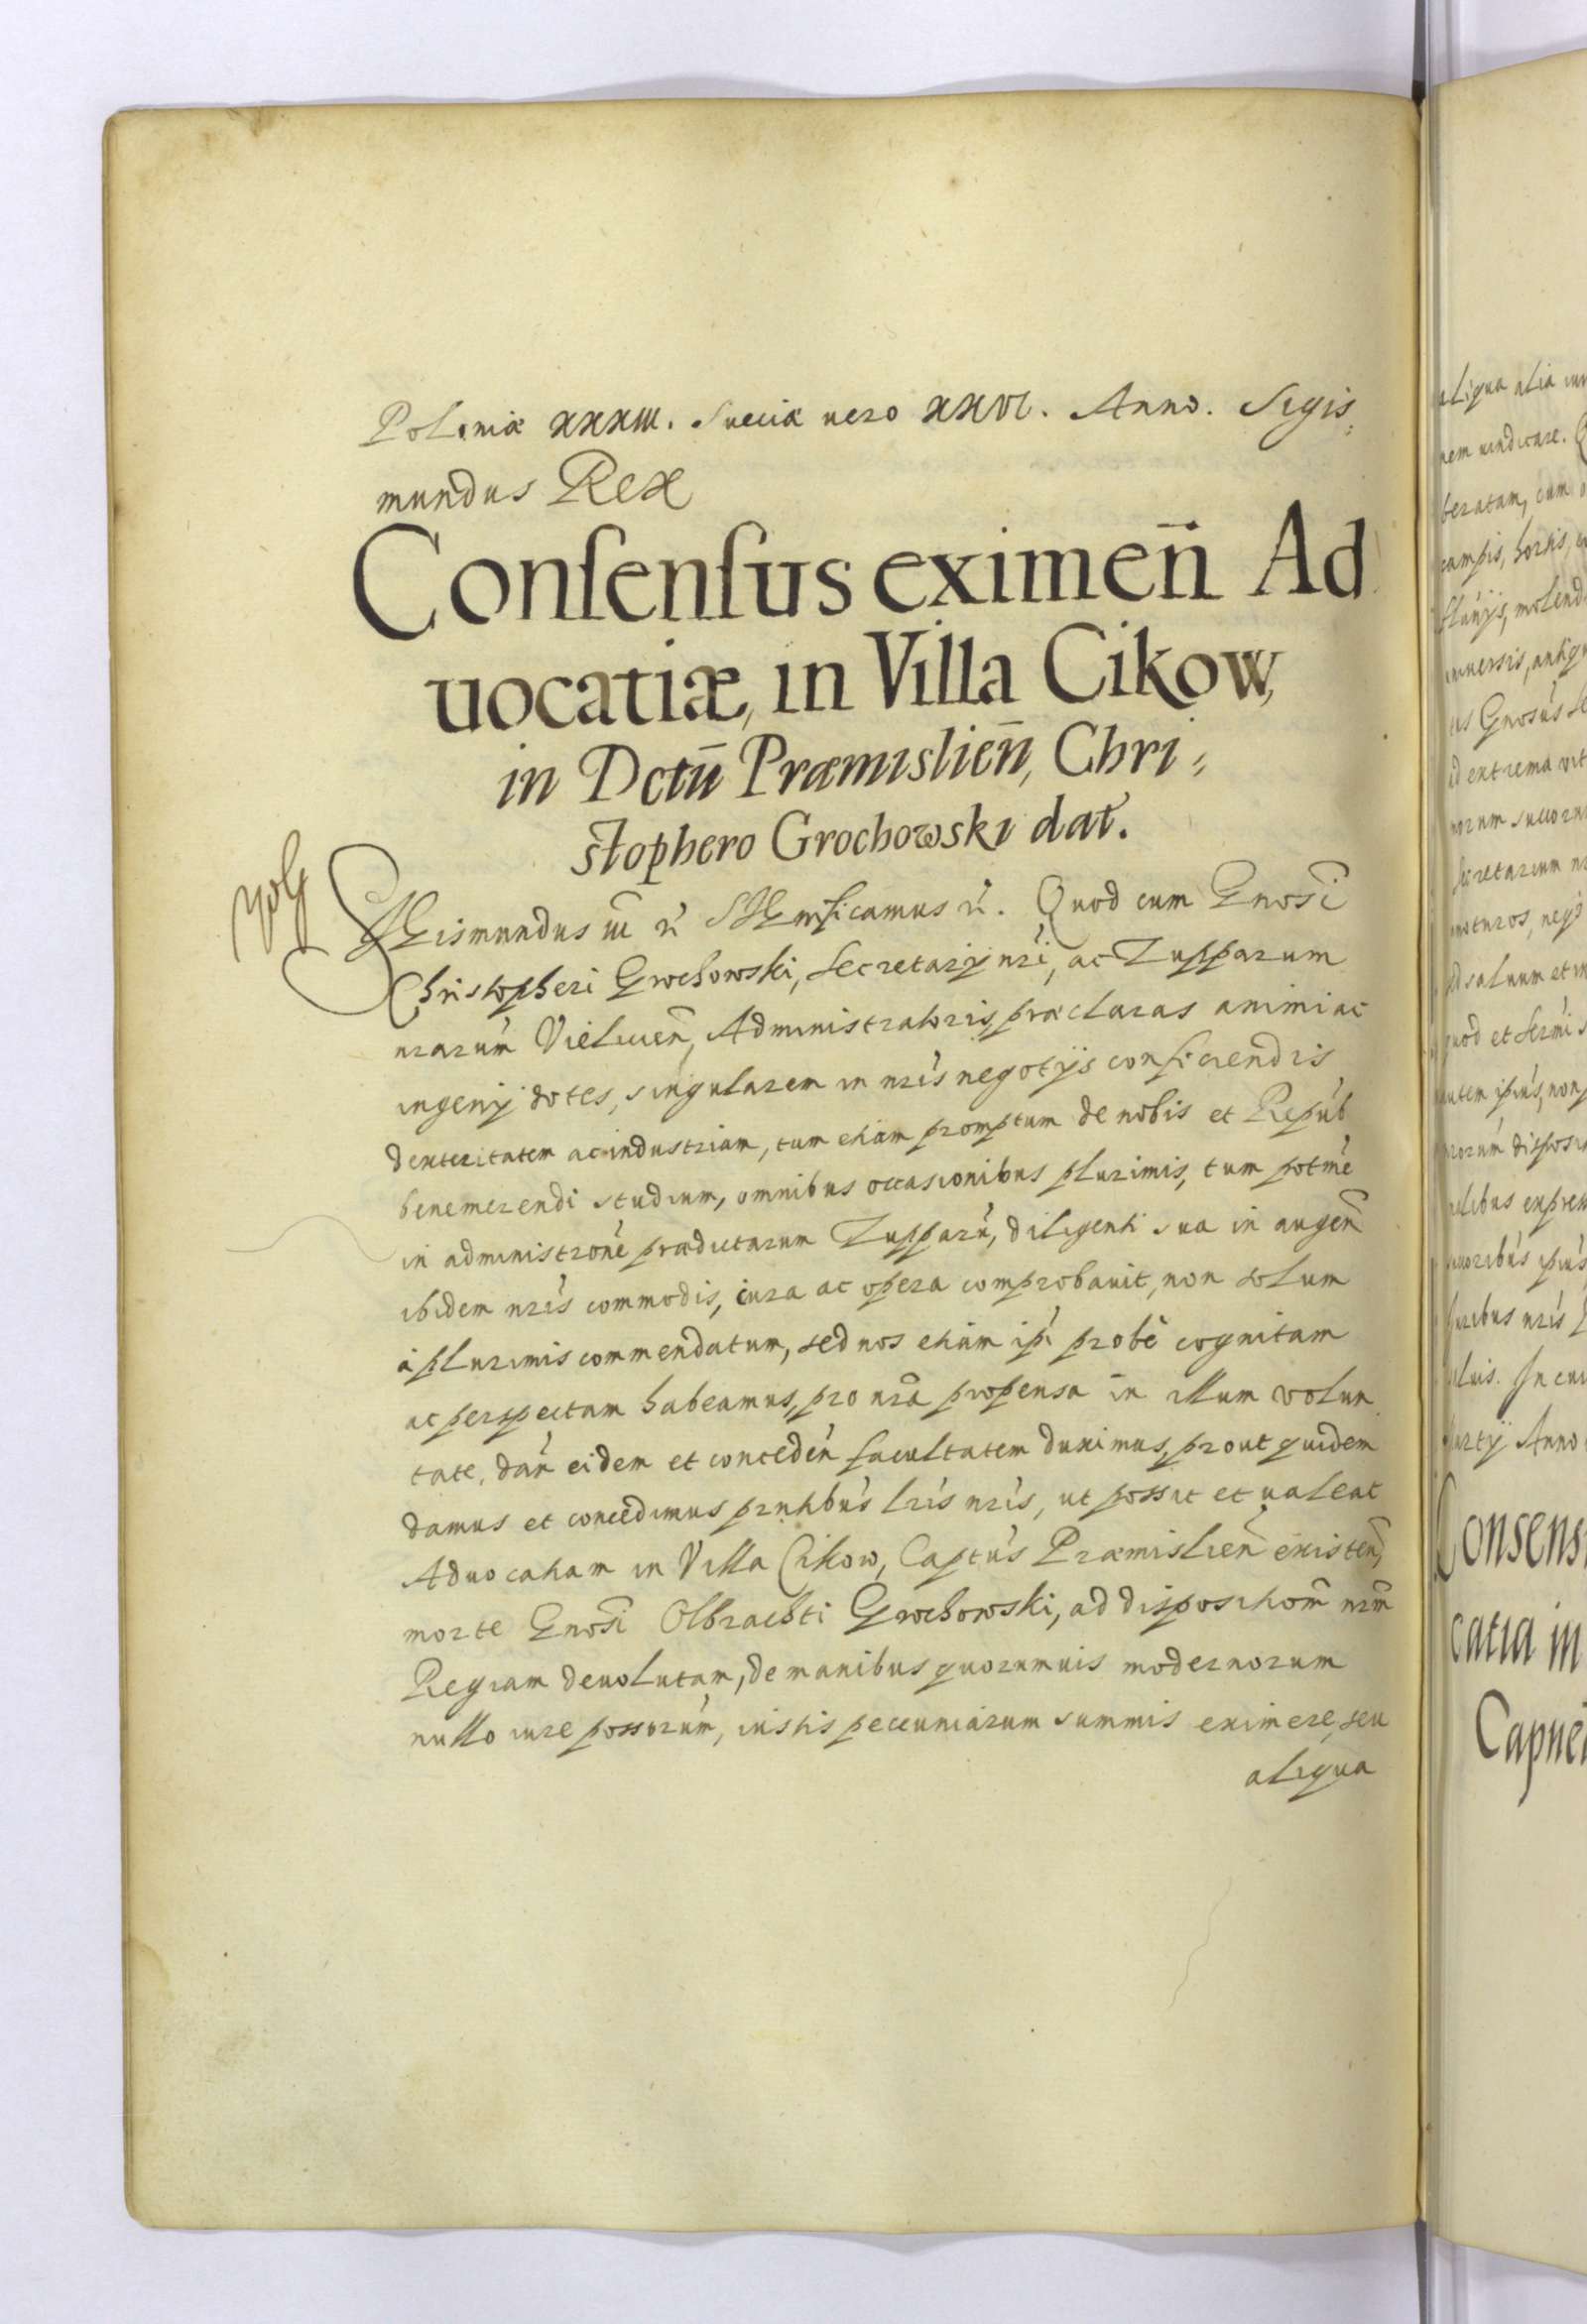 Poloniæ XXXIII. Sueciæ uero XXVI. Anno. Sigis,
mundus Rex
Conſenſus eximen̄ Ad
uocatiæ, in Villa Cikow,
in Dctū Præmislien̄, Chri,
stophero Grochowski dat̄.
Sigismundus III etc̃ Significamus etc̃. Quod cum Gnosi
Christopheri Grochowski, Secretarij nrī, ac Zupparum
nrarum̄ Vielicien̄, Administratoris, præclaras animi ac
ingenij dotes, singularem in nrīs negotijs conficiendis
dexteritatem ac industriam, tum etiam promptum de nobis et Repub
benemerendi studium, omnibus occasionibus plurimis, tum potmē
in administronē prædictarum Zupparū, diligenti sua in augen̄
ibidem nrīs commodis, cura ac opera comprobauit, non solum
à plurimis commendatum, sed nos etiam ipī probè cognitam
ac perspectam habeamus, pro nrā propensa in illum volun
tate, dan̄ eidem et conceden̄ facultatem duximus, prout quidem
damus et concedimus prntibus lrīs nrīs, ut possit et ualeat
Aduocatiam in Villa Cikow, Captus Præmislien̄ existen̄,
morte Gnosi Olbrachti Grochowski, ad dispositiom̄ nrm̄
Regiam deuolutam, de manibus quorumuis modernorum
nullo iure possorum̄, iustis pecuniarum summis eximere, seu
aliqua
aliqua alia
nem uindicare.
beratam, cum
campis, hortis,
molend
antiqu
Gnosus
ad extrema vit
Secretarium
quod et
non
Anno
Consens
catia in